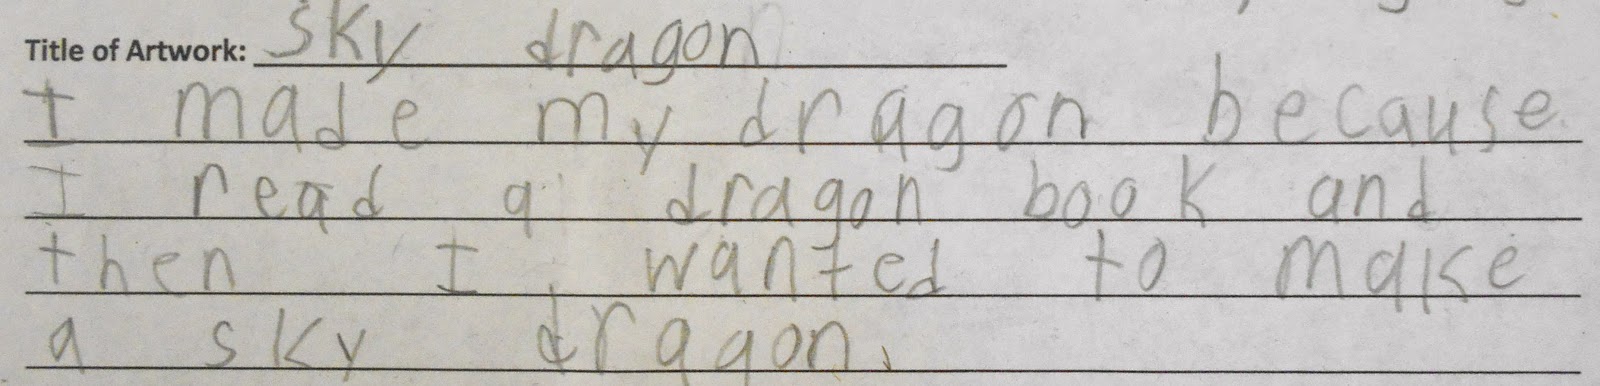 Title of Artwork: sky dragon
I made my dragon because
I read a dragon book and
then I wanted to make
a sky dragon.